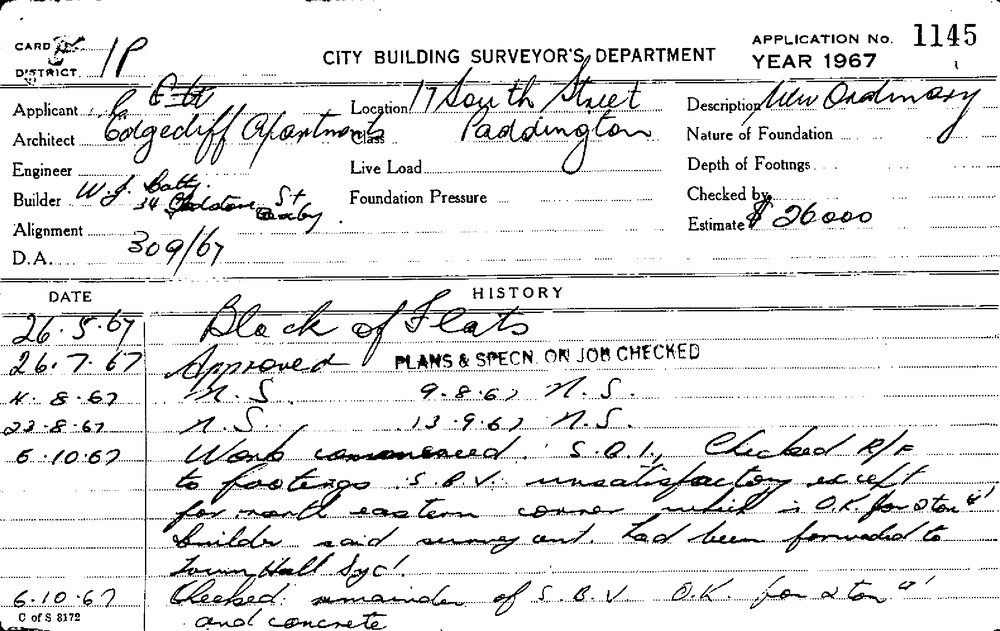 CARD
DISTRICT 1P
CITY BUILDING SURVEYOR'S DEPARTMENT
APPLICATION No. 1145
YEAR 1967
Applicant
Architect Edgecliff Apartments
Engineer
Builder W. J. Batty.
34 Gladstone St
Alignment
D.A. 309/67
Location 17 South Street
Class Paddington
Live Load
Foundation Pressure
Description New Ordinary
Nature of Foundation
Depth of Footings
Checked by
Estimate $ 26000
DATE HISTORY
26.5.67 Block of Flats
26.7.67 Approved PLANS & SPECN. ON JOB CHECKED
4.8.67 N.S. 9.8.67 N.S.
23.8.67 N.S. 13.9.67 N.S.
6.10.67 Work commenced. S.O.I., Checked R/F
to footings S.B.V. unsatisfactory except
for north eastern corner which is O.K. for 2 ton □'
builder said survey cert. had been forwarded to
Town Hall Syd'.
6.10.67 Checked remainder of S.B.V. O.K. for 2 ton □'
and concrete
C of S 8172